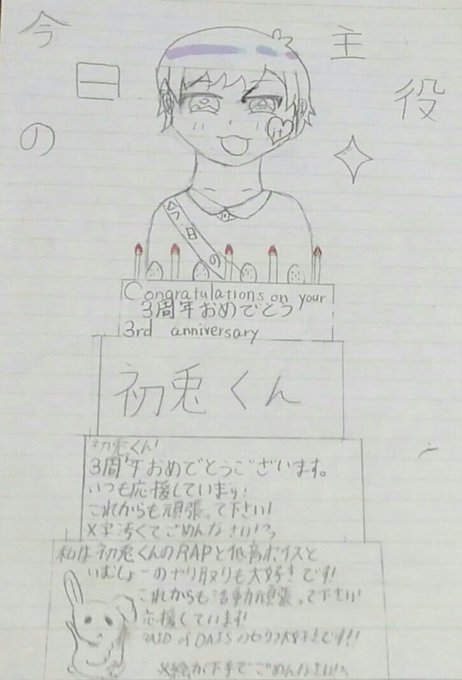 今日の
主役
今日の
Congratulations on your
3周年おめでとう
3rd anniversary
初兎くん
初兎くん!
3周年おめでとうございます。
いつも応援しています!
これからも頑張って下さい!
※字汚くてごめんなさい!
私は初兎くんのRAPと低音ボイスと
いむしょーのやり取りも大好きです!
これからも活動頑張って下さい!
応援しています!
大好きです!!
※絵が下手でごめんなさい!